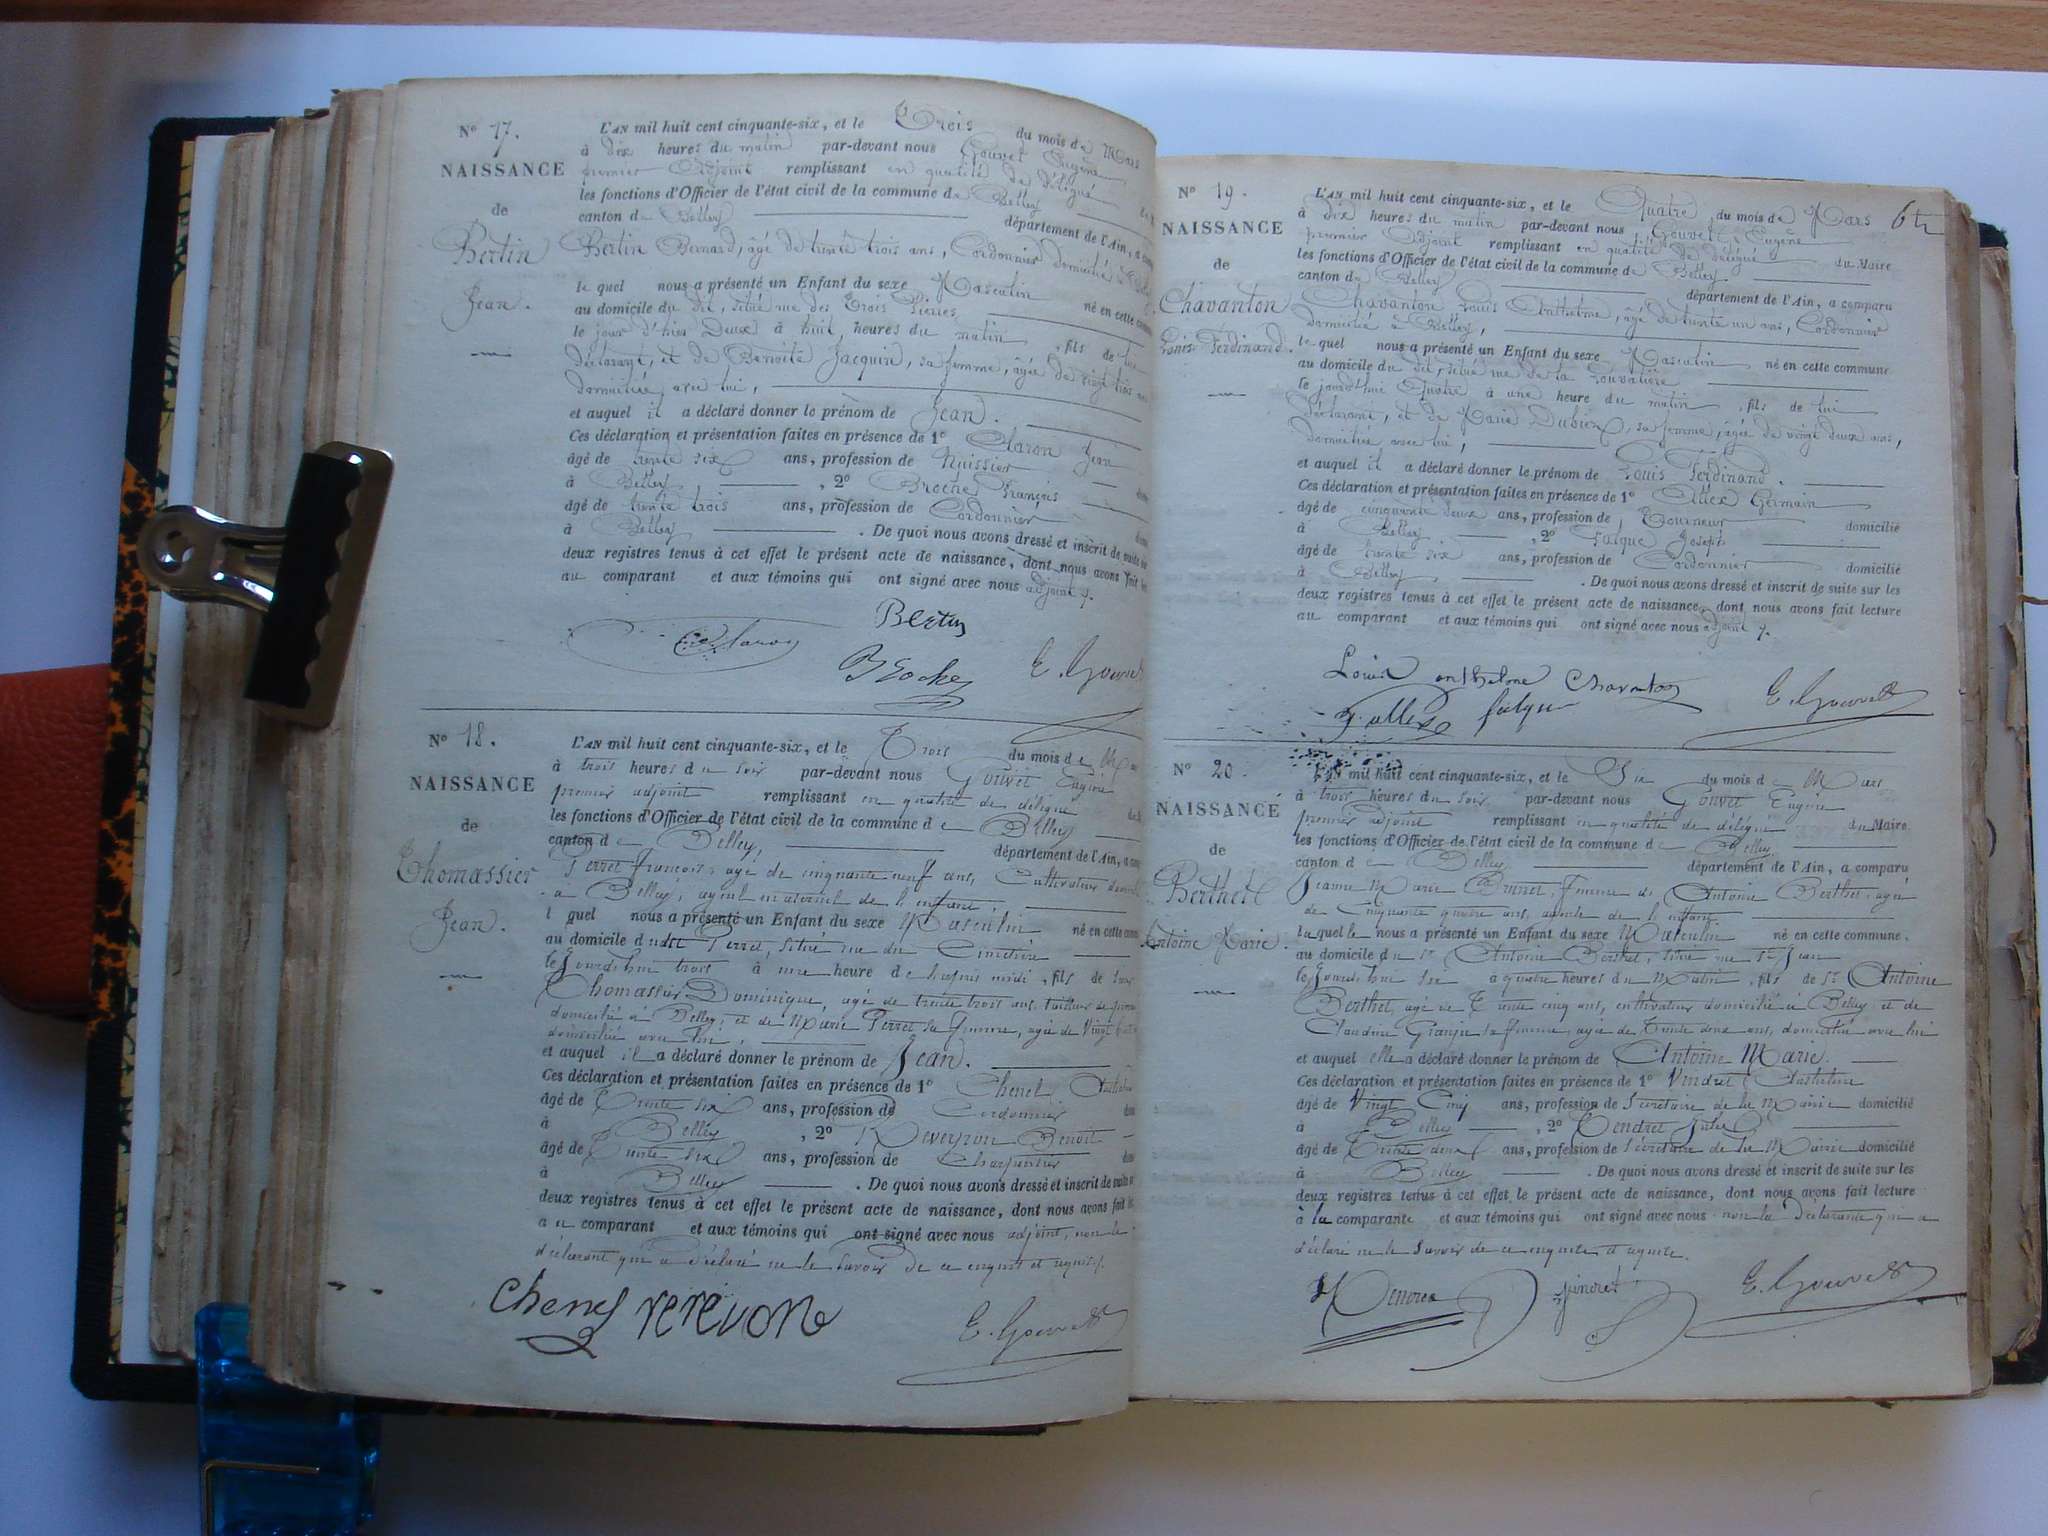 N° 17.
NAISSANCE
de
Bertin
Jean.
L'AN mil huit cent cinquante-six, et le Trois du mois de Mars
à dix heures du matin par-devant nous Gouvet Eugène
premier Adjoint remplissant en qualité de délégué
les fonctions d'Officier de l'état civil de la commune de Belley
canton de Belley département de l'Ain, a
Bertin Bernard, âgé de trente trois ans, Cordonnier domicilié à
le quel nous a présenté un Enfant du sexe Masculin né en cette
au domicile du dit, situé rue des Trois
le jour d'hier Deux à huit heures du matin, fils de lui
déclarant, et de Benoîte Jacquin, sa femme, âgée de vingt trois
domiciliée avec lui,
et auquel il a déclaré donner le prénom de Jean.
Ces déclaration et présentation faites en présence de 1° Claron Jean
âgé de trente six ans, profession de Huissier
à Belley, 2° Broche François
âgé de trente trois ans, profession de Cordonnier
à Belley. De quoi nous avons dressé et inscrit de suite
deux registres tenus à cet effet le présent acte de naissance, dont nous avons fait
au comparant et aux témoins qui ont signé avec nous adjoint
Bertin
Claron
Broche E. Gouvet
N° 18.
NAISSANCE
de
Thomassier
Jean.
L'AN mil huit cent cinquante-six, et le Trois du mois de
à trois heures du soir par-devant nous Gouvet Eugène
premier adjoint remplissant en qualité de délégué
les fonctions d'Officier de l'état civil de la commune de Belley
canton de Belley, département de l'Ain, a
Perret françois, agé de cinquante neuf ans, Cultivateur
à Belley, ayeul maternel de l'enfant,
l quel nous a présenté un Enfant du sexe Masculin né en cette
au domicile dudit Perret, situé rue du Cimetière
le Jourdhui trois à une heure de laprès midi, fils de
Thomassier Dominique, agé de trente trois ans, tailleur de
domicilié à Belley, et de Marie Perret sa femme, agée de Vingt
domiciliée avec lui,
et auquel il a déclaré donner le prénom de Jean.
Ces déclaration et présentation faites en présence de 1° Chenel
âgé de Trente six ans, profession de Cordonnier
à Belley, 2° Reveyron Benoit
âgé de Trente six ans, profession de Charpentier
à Belley. De quoi nous avons dressé et inscrit de suite
deux registres tenus à cet effet le présent acte de naissance, dont nous avons fait
au comparant et aux témoins qui ont signé avec nous adjoint, non le
déclarant qui a déclaré ne le savoir de ce enquis et
E. Gouvet
N° 19.
NAISSANCE
de
Chavanton
Louis Ferdinand.
L'AN mil huit cent cinquante-six, et le Quatre du mois de Mars
à dix heures du matin par-devant nous Gouvet Eugène
premier Adjoint remplissant en qualité de délégué du Maire
les fonctions d'Officier de l'état civil de la commune de Belley
canton de Belley département de l'Ain, a comparu
Chavanton Louis Anthelme, âgé de trente un ans, Cordonnier
domicilié à Belley,
le quel nous a présenté un Enfant du sexe Masculin né en cette commune
au domicile du dit, situé rue de la
le jourd'hui Quatre à une heure du matin, fils de lui
déclarant, et de Marie Dubieux, sa femme, âgée de vingt deux ans,
domiciliée avec lui,
et auquel il a déclaré donner le prénom de Louis Ferdinand.
Ces déclaration et présentation faites en présence de 1° Germain
âgé de cinquante deux ans, profession de Tourneur domicilié
à Belley, 2° Falque Joseph
âgé de trente six ans, profession de Cordonnier domicilié
à Belley. De quoi nous avons dressé et inscrit de suite sur les
deux registres tenus à cet effet le présent acte de naissance, dont nous avons fait lecture
au comparant et aux témoins qui ont signé avec nous adjoint
Louis anthelme Chavanton
falque E. Gouvet
N° 20.
NAISSANCE
de
Berthet
Antoine Marie.
L'AN mil huit cent cinquante-six, et le Six du mois de Mars
à trois heures du soir par-devant nous Gouvet Eugène
premier adjoint remplissant en qualité de délégué du Maire
les fonctions d'Officier de l'état civil de la commune de Belley
canton de Belley département de l'Ain, a comparu
Jeanne Marie femme de Antoine Berthet, agée
de Cinquante quatre ans, de l'enfant,
laquelle nous a présenté un Enfant du sexe Masculin né en cette commune.
au domicile du Sr Antoine Berthet, situé rue St Jean
le Jourdhui Six à quatre heures du Matin, fils de Sr Antoine
Berthet, agé de Trente cinq ans, cultivateur domicilié à Belley et de
Claudine Granger sa femme, agée de Trente deux ans, domiciliée avec lui
et auquel elle a déclaré donner le prénom de Antoine Marie.
Ces déclaration et présentation faites en présence de 1° Vindret Anthelme
âgé de Vingt Cinq ans, profession de Secrétaire de la Mairie domicilié
à Belley, 2° Tendret Jules
âgé de Trente deux ans, profession de Sécrétaire de la Mairie domicilié
à Belley. De quoi nous avons dressé et inscrit de suite sur les
deux registres tenus à cet effet le présent acte de naissance, dont nous avons fait lecture
à la comparante et aux témoins qui ont signé avec nous non la Déclarante qui a
déclaré ne le savoir de ce enquise et
Vindret E. Gouvet